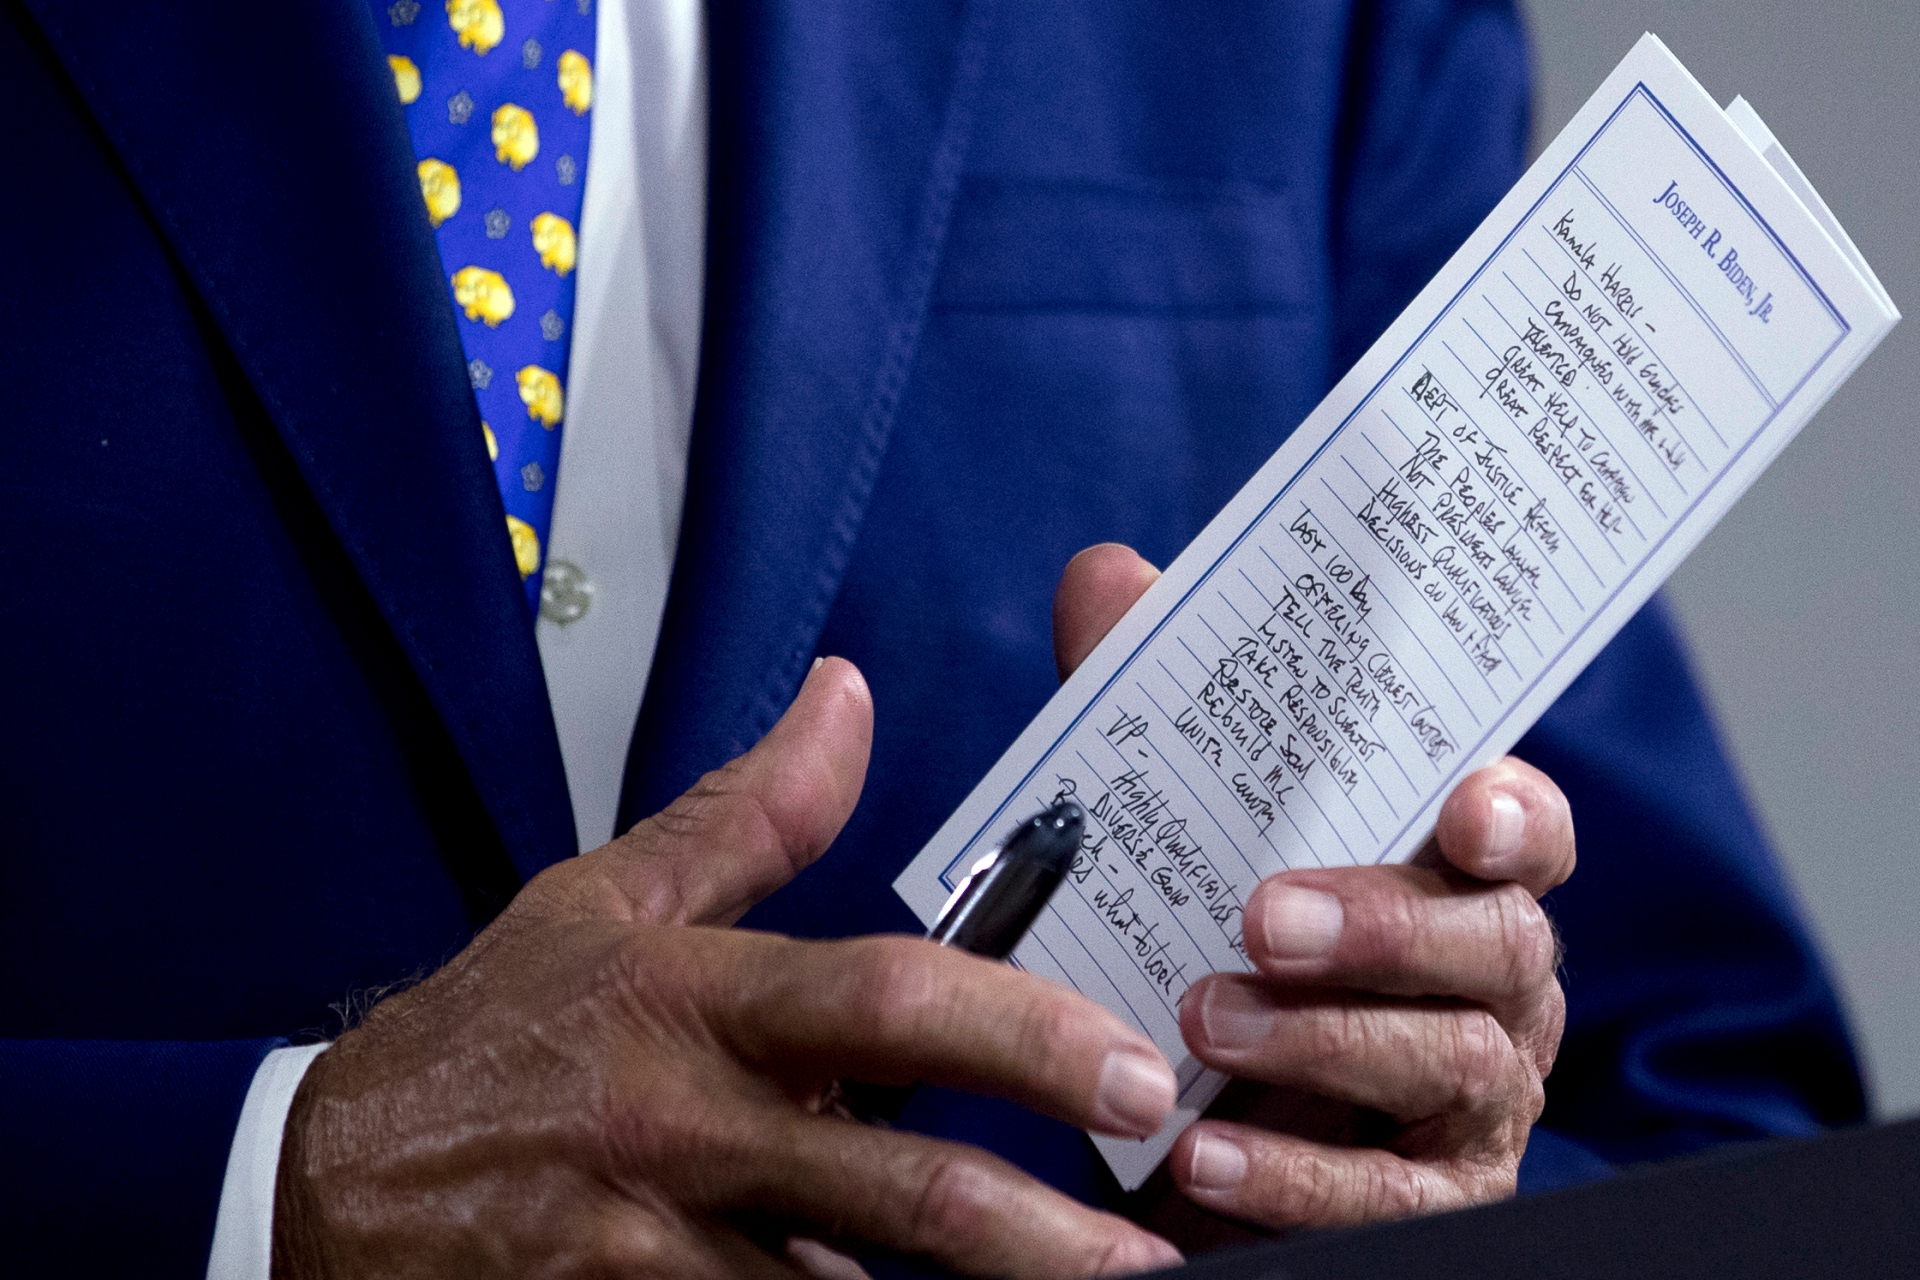 JOSEPH R. BIDEN, JR.
KAMALA HARRIS -
DO NOT HOLD GRUDGES
CAMPAIGNED WITH ME & Jill
TALENTED.
GREAT HELP TO CAMPAIGN
GREAT RESPECT FOR HER
DEPT OF JUSTICE REFORM
THE PEOPLES LAWYER
NOT PRESIDENTS LAWYER
HIGHEST QUALIFICATIONS
DECISIONS ON LAW & FACT
LAST 100 DAY
OFFERING CLEAREST CONTRAST
TELL THE TRUTH
LISTEN TO SCIENTIST
TAKE RESPONSIBILITY
RESTORE SOUL
REBUILD M.C
UNITE COUNTRY
VP -
Highly QUALIFIED
DIVERSE GROUP
what to look